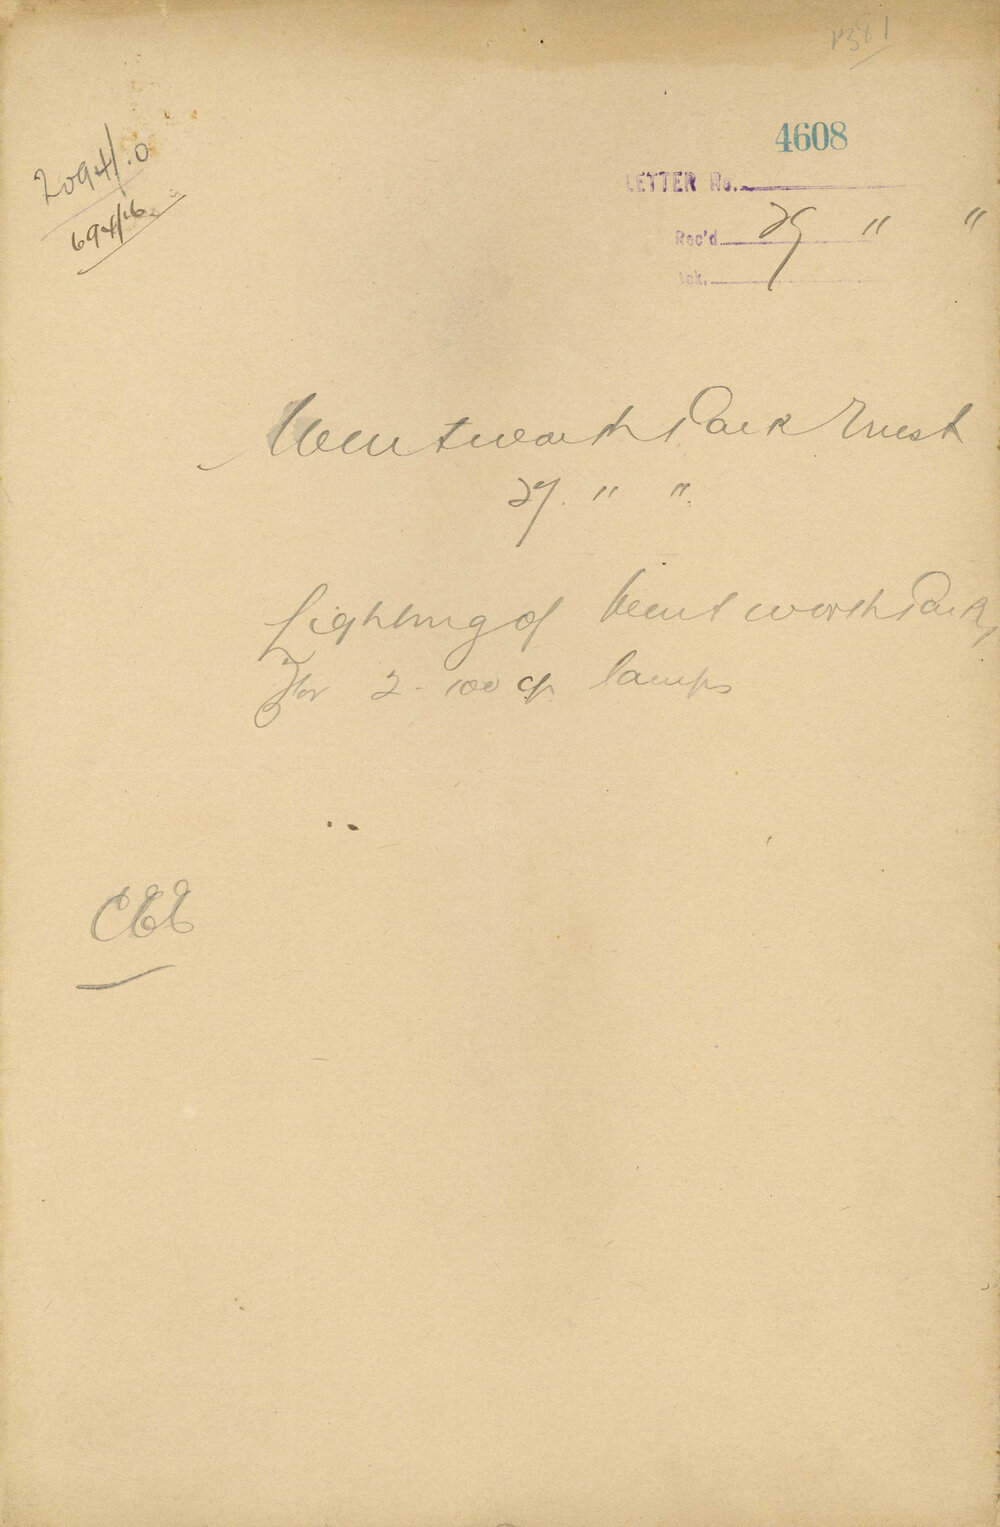 1381
4608
2094/.0
694/16
LETTER No.
Rec'd 29 " "
Ack.
Wentworth Park Trust
27. " "
Lighting of Wentworth Park,
for 2 - 100 cp lamps
CEE